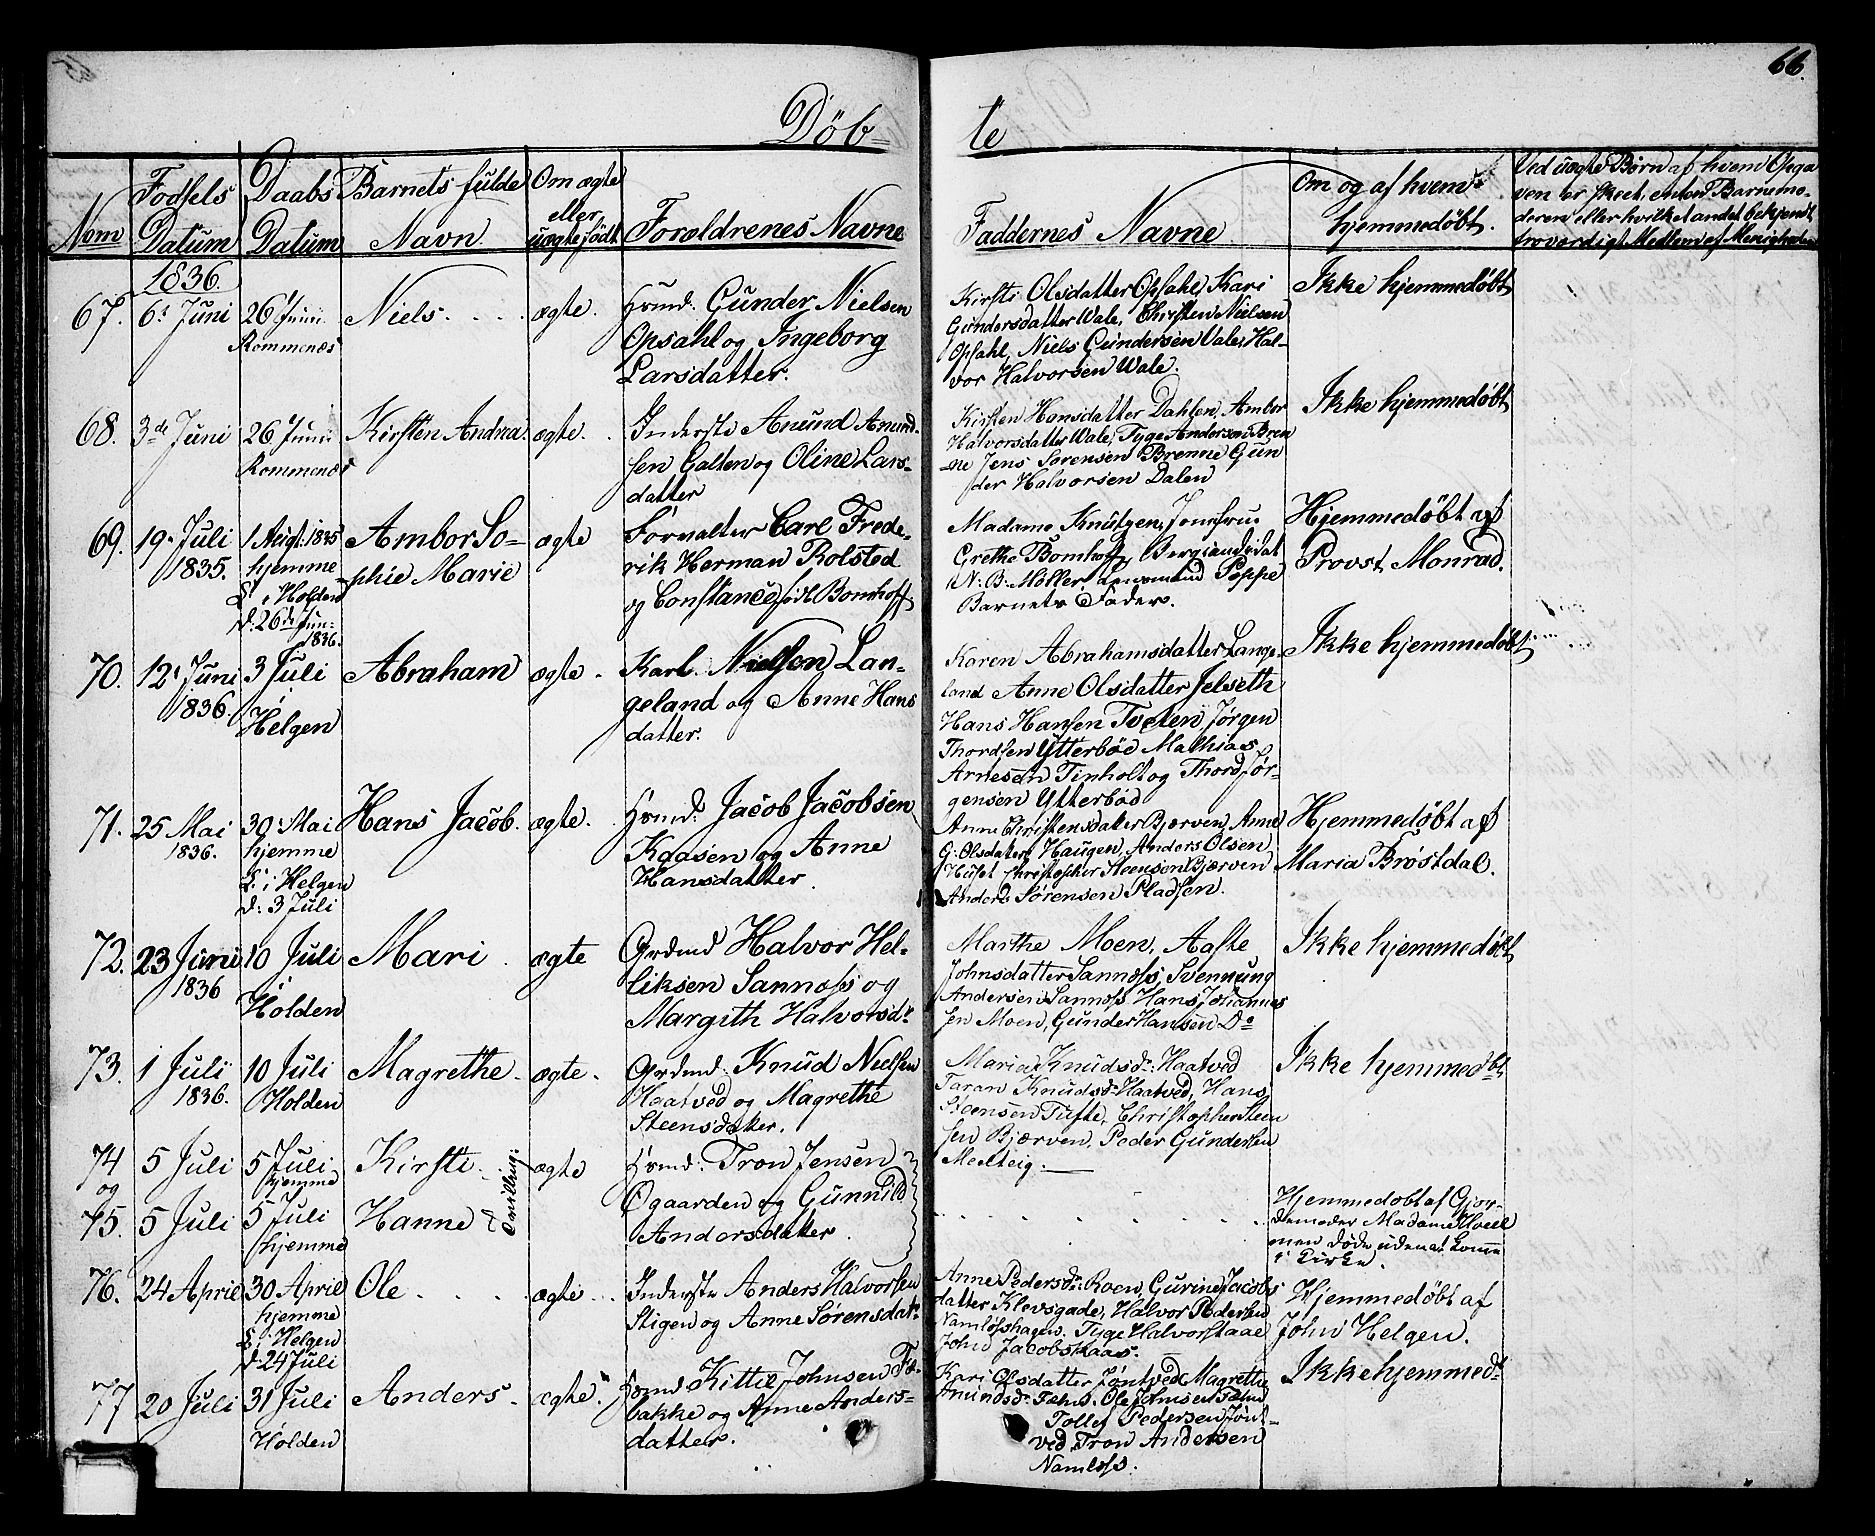 66.
Döb-
te
Nom
Fødsels
Datum
Daabs
Datum
Barnets fulde
Navn
Om ægte
eller
uægte født
Forældrenes Navne
Faddernes Navne
Om og af hvem
hjemmedøbt.
Ved uægte Børn af hvem Opga
ven er skeet, enten Barnemo-
deren eller hvilket andet bekjendt
troværdigt Medlem af Menigheden
1836.
67.
6t Juni
26 Juni
Rommenæs
Niels
ægte.
Huusmd: Gunder Nielsen
Opsahl og Ingeborg
Larsdatter.
Kirsti Olsdatter Opsahl, Kari
Gundersdatter Wale, Christen Nielsen
Opsahl, Niels Gundersen Vale, Hal-
vor Halvorsen Wale.
Ikke hjemmedøbt
68.
3de Juni
26 Juni
Rommenæs
Kirsten Andrea
ægte.
Inderste Anund Anund-
sen Galten og Oline Lars-
datter
Kirsten Hansdatter Dahlen, Ambor
Halvorsdatter Wale, Tyge Andersen Bren
ne Jens Sørensen Brenne Gun
der Halvorsen Dalen
Ikke hjemmedøbt
69.
19. Juli
1835.
1 Augt. 1835
hjemme
i Holden
d: 26de Jun-
1836.
Ambor So-
phie Marie
ægte
Forvalter Carl Frede-
rik Herman Rolsted
og Constance født Bomhoff
Madame Knutzen, Jomfrue
Grethe Bomhoff, Bergkandidat
N. B. Møller, Lensmand Poppe
Barnets Fader.
Hjemmedøbt af
Provst Monrad.
70.
12t Juni
1836.
3 Juli
i
Helgen
Abraham
ægte
Karl Nielsen Lan-
geland og Anne Hans
datter.
Karen Abrahamsdatter Lange-
land Anne Olsdatter Jelseth
Hans Hansen Tveten, Jørgen
Thordsen Ytterbøe Mathias
Arnesen Tinholt og Thord Jør-
gensen Ytterbøe
Ikke hjemmedøbt
71.
25 Mai
1836.
30 Mai
hjemme
i Helgen
d: 3 Juli
Hans Jacob.
ægte.
Huusmd: Jacob Jacobsen
Kaasen og Anne
Hansdatter.
Anne Christensdatter Bjærven, Anne
G: Olsdatter Haugen, Anders Olsen
Huset Christopher Steensen Bjærven
Anders Sørensen Pladsen.
Hjemmedøbt af
Maria Brøstdal.
72.
23 Juni
1836
10 Juli
i
Holden
Mari
ægte
Grdmd Halvor Hel-
liksen Sannøss og
Margith Halvorsdr
Marthe Moen, Aaste
Johnsdatter Sannøss, Svennung
Andersen Sannøss Hans Johannes
sen Moen, Gunder Hansen Do
Ikke hjemmedøbt
73.
1 Juli
1836.
10 Juli
Holden
Magrethe
ægte
Grdmd: Knud Nielsen
Haatved og Magrethe
Steensdatter.
Maria Knudsdr: Haatved
Taran Knudsdr: Haatved, Hans
Steensen Tufte, Christopher Steen
sen Bjærven, Peder Gundersen
Melteig.
Ikke hjemmedøbt
74
og
75.
5 Juli
5 Juli
5 Juli
hjemme
5 Juli
hjemme
Kirsti
Hanne
Tvilling:
ægte
Huusmd: Tron Jensen
Ogaarden og Gunnild
Andersdatter.
Hjemmedøbt af Gjor-
demoder Madame Hvell
men døde uden at komme
i Kirke.
76.
24 April
30 April
hjemme
i Helgen
d. 24 Juli
Ole
ægte
Inderste Anders Halvorsen
Stigen og Anne Sørensdatr.
Anne Pedersdr: Roen, Gurine Jacobs
datter Klevsgade, Halvor Pedersen
Namløshagen, Tyge Halvors Kaas
John Jacobs Kaas.
Hjemmedøbt af
John Helgen.
77
20 Juli
31 Juli
Holden
Anders
ægte.
Huusmd Kittil Johnsen Fæ-
bakke og Anne Anders-
datter.
Kari Olsdatter Jøntved, Magrethe
Amundsdr. Fæhn. Ole Johnsen Fæhn
Tollef Pedersen Jønt-
ved, Tron Andersen
Namløss.
Ikke hjemmedt